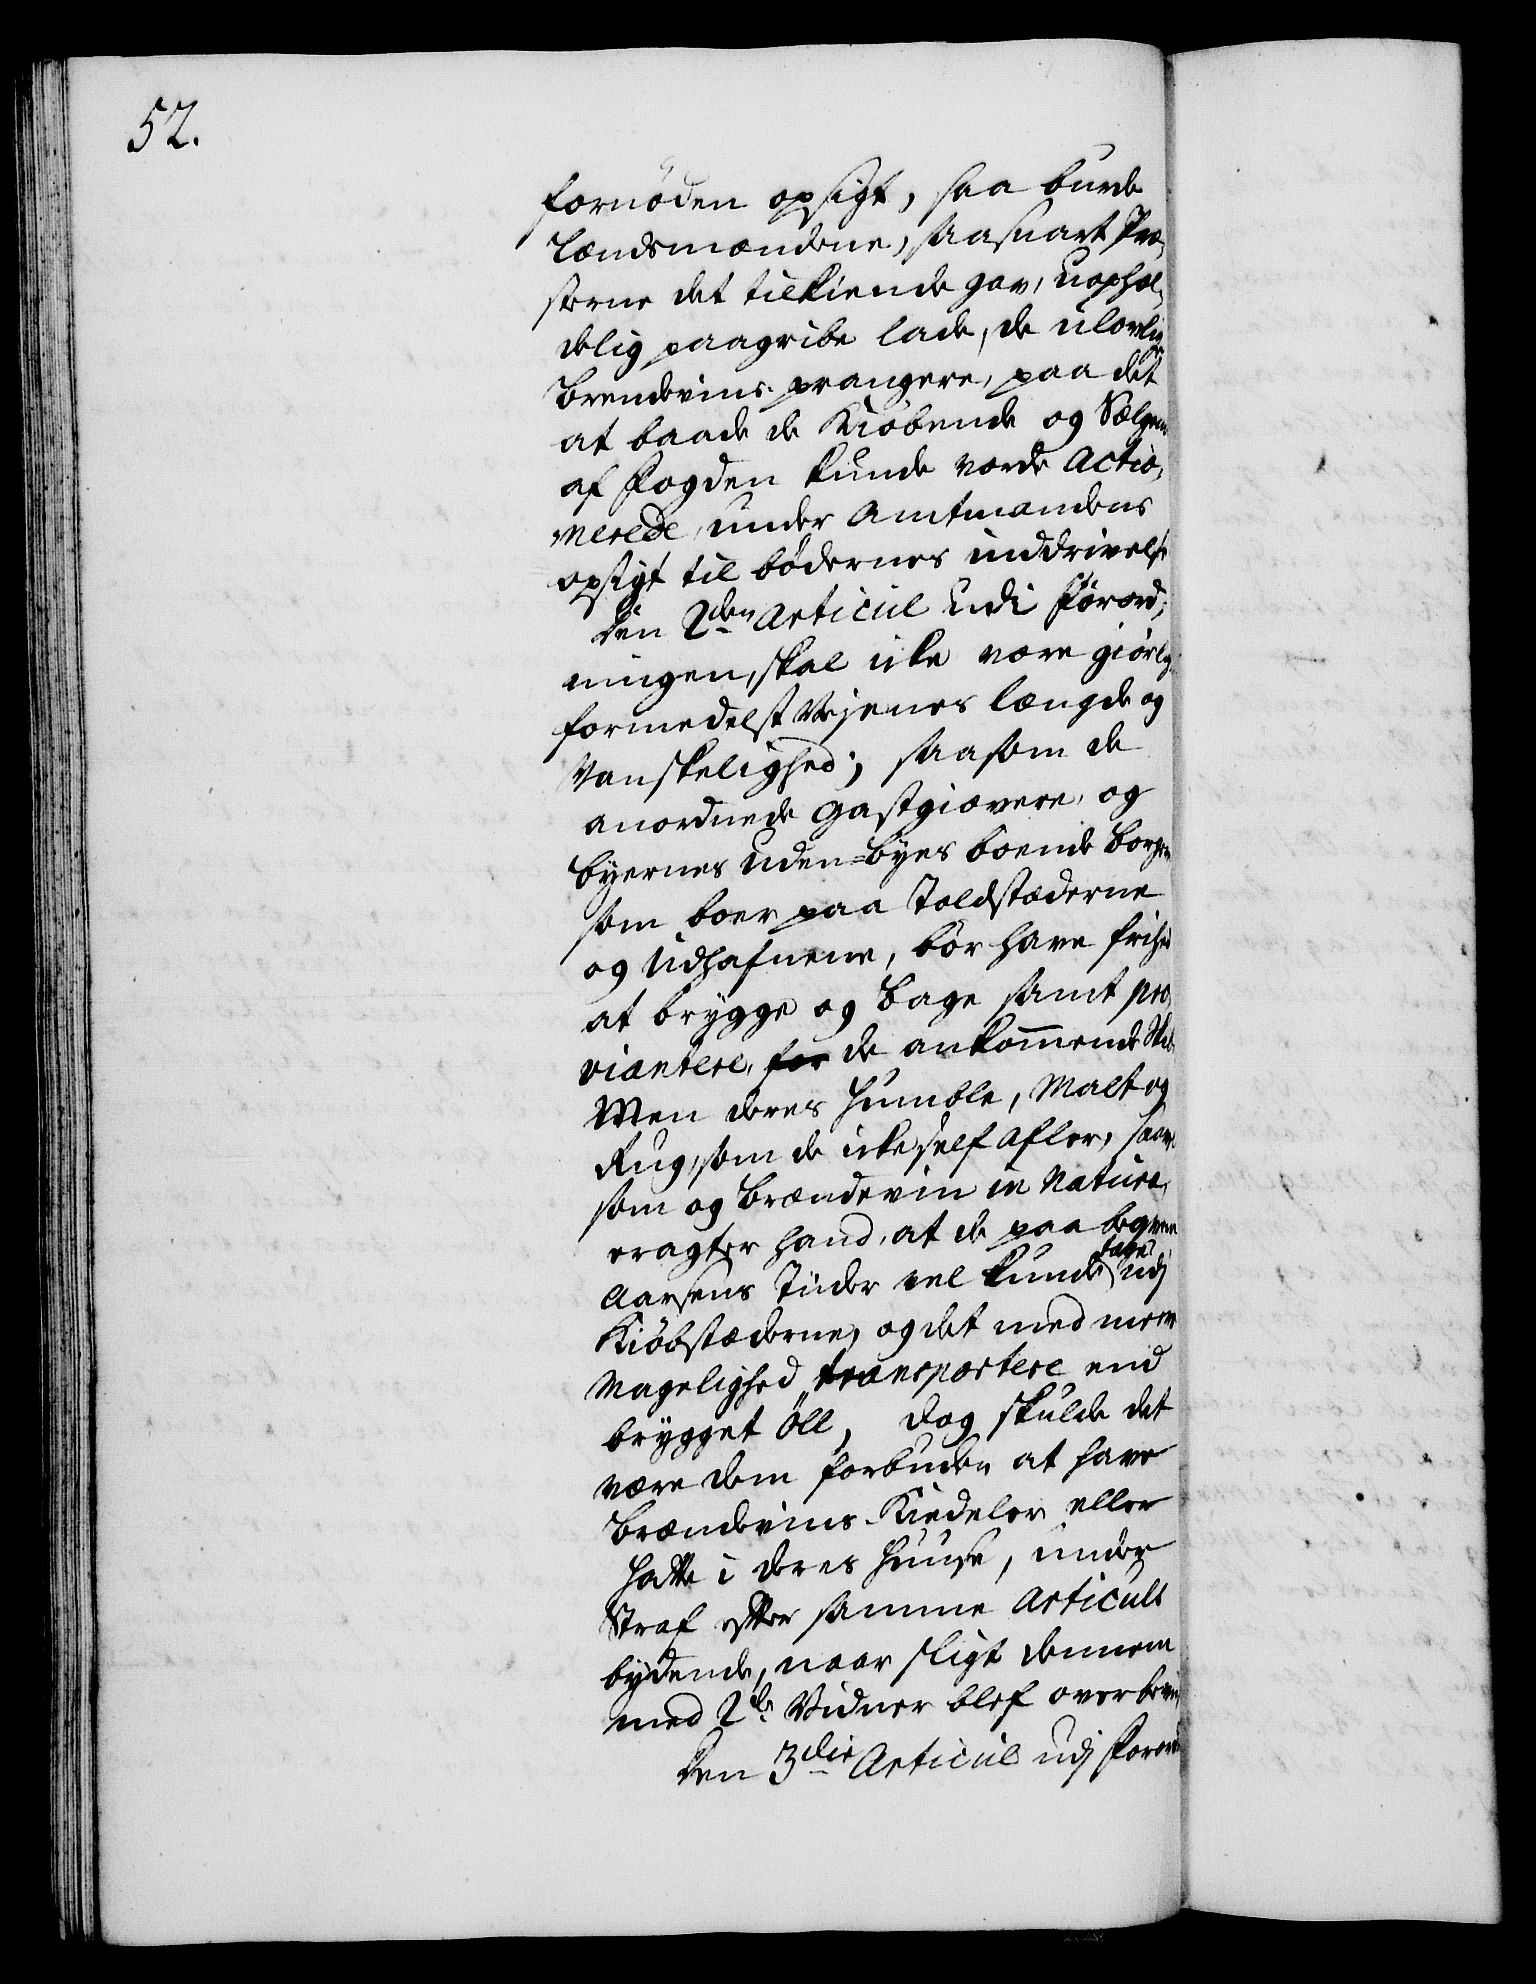 52.
fornöden opsigt, saa burde
Lændsmændene, saasnart Præ-
sterne det tilkiende gav, uophol-
delig paagribe lade, de ulovlige
Brendevins prangere, paa det
at baade de Kiöbende og Sælgen
af Fogden kunde vorde Actio-
nerede, under Amtmandens
opsigt til bödernes inddrivelse
Den 2den Articul udi Forord-
ningen, skal icke være giörlig
formedelst Vejenes længde og
Vanskelighed; saasom de
anordnede Gæstgiævere, og
byernes uden-byes boende borgere
som boer paa Toldstæderne
og Udhafnene, bör have frihed
at brygge og bage samt pro-
viantere, for de ankommende Skib
Men deres Humble, Malt og
Rug, som de icke self afler, saavel
som og Brændevin in Natura,
eragter hand, at de paa beqvem
Aarsens Tider vel kunde tage udj
Kiöbstæderne, og det med meere
Magelighed transportere end
brygget öll, dog skulde det
være dem forbuden at have
Brændevins-Kiedeler eller
Hatte i deres Huuse, under
Straf efter samme Articuls
bydende, naar sligt dennem
med 2de Vidner blef overbevi
Den 3die Articul udj Forord